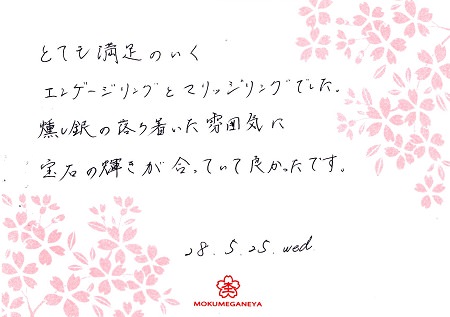 とても満足のいく
エンゲージリングとマリッジリングでした。
燻し銀の落り着いた雰囲気に
宝石の輝きが合っていて良かったです。
28.5.25.wed
MOKUMEGANEYA